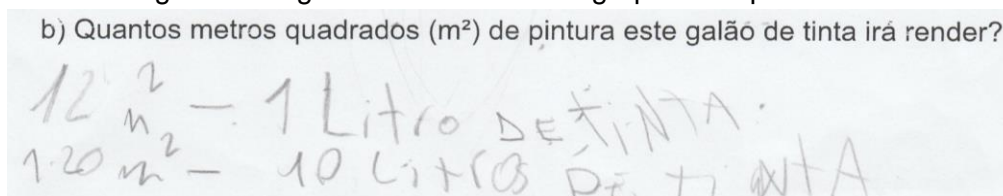 b) Quantos metros quadrados (m²) de pintura este galão de tinta irá render?
12 m² – 1 LitrO DE TiNTA.
120 m² – 10 LitrOS DE TiNTA